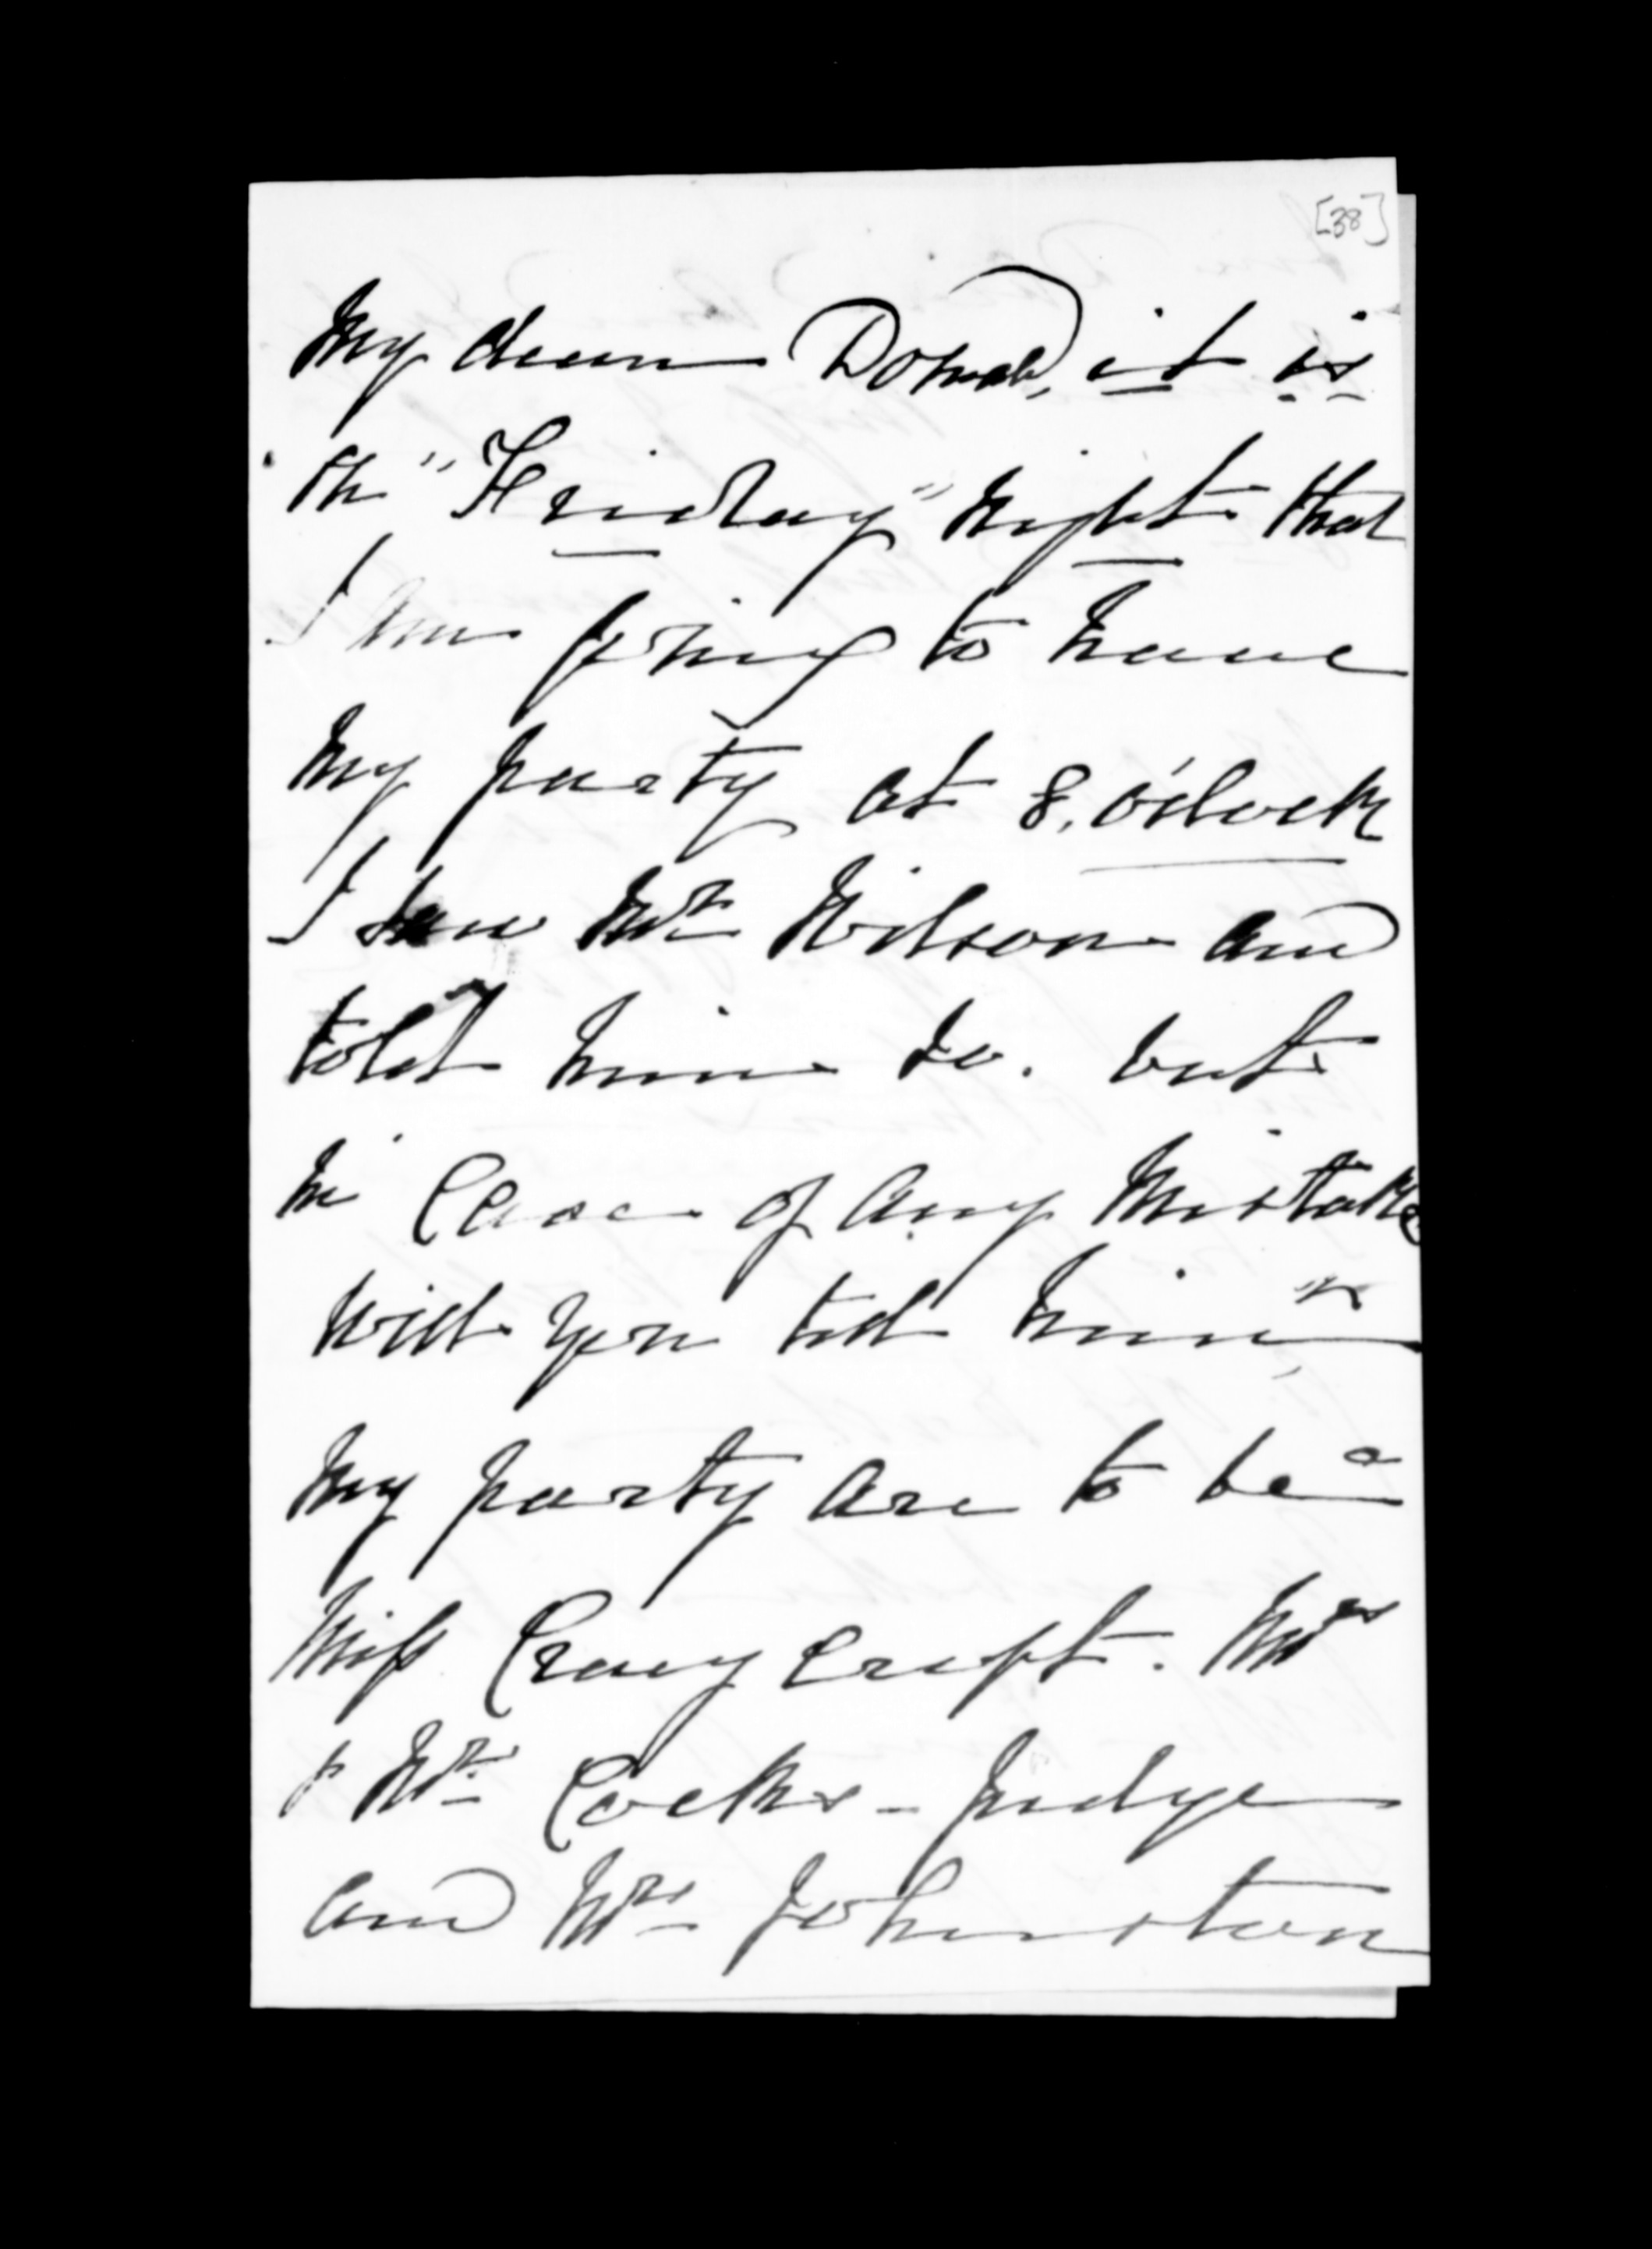 [38]
My dear Donald, it is
on "Friday" night that
I am going to have
my party at 8, o'clock
I saw Mr Wilson and
told him so. but
in Case of any Mistake
will you tell him
My party are to be
Miss Cracycroft. Mrs
& Mr Cocks - Judge
and Mrs Johnston